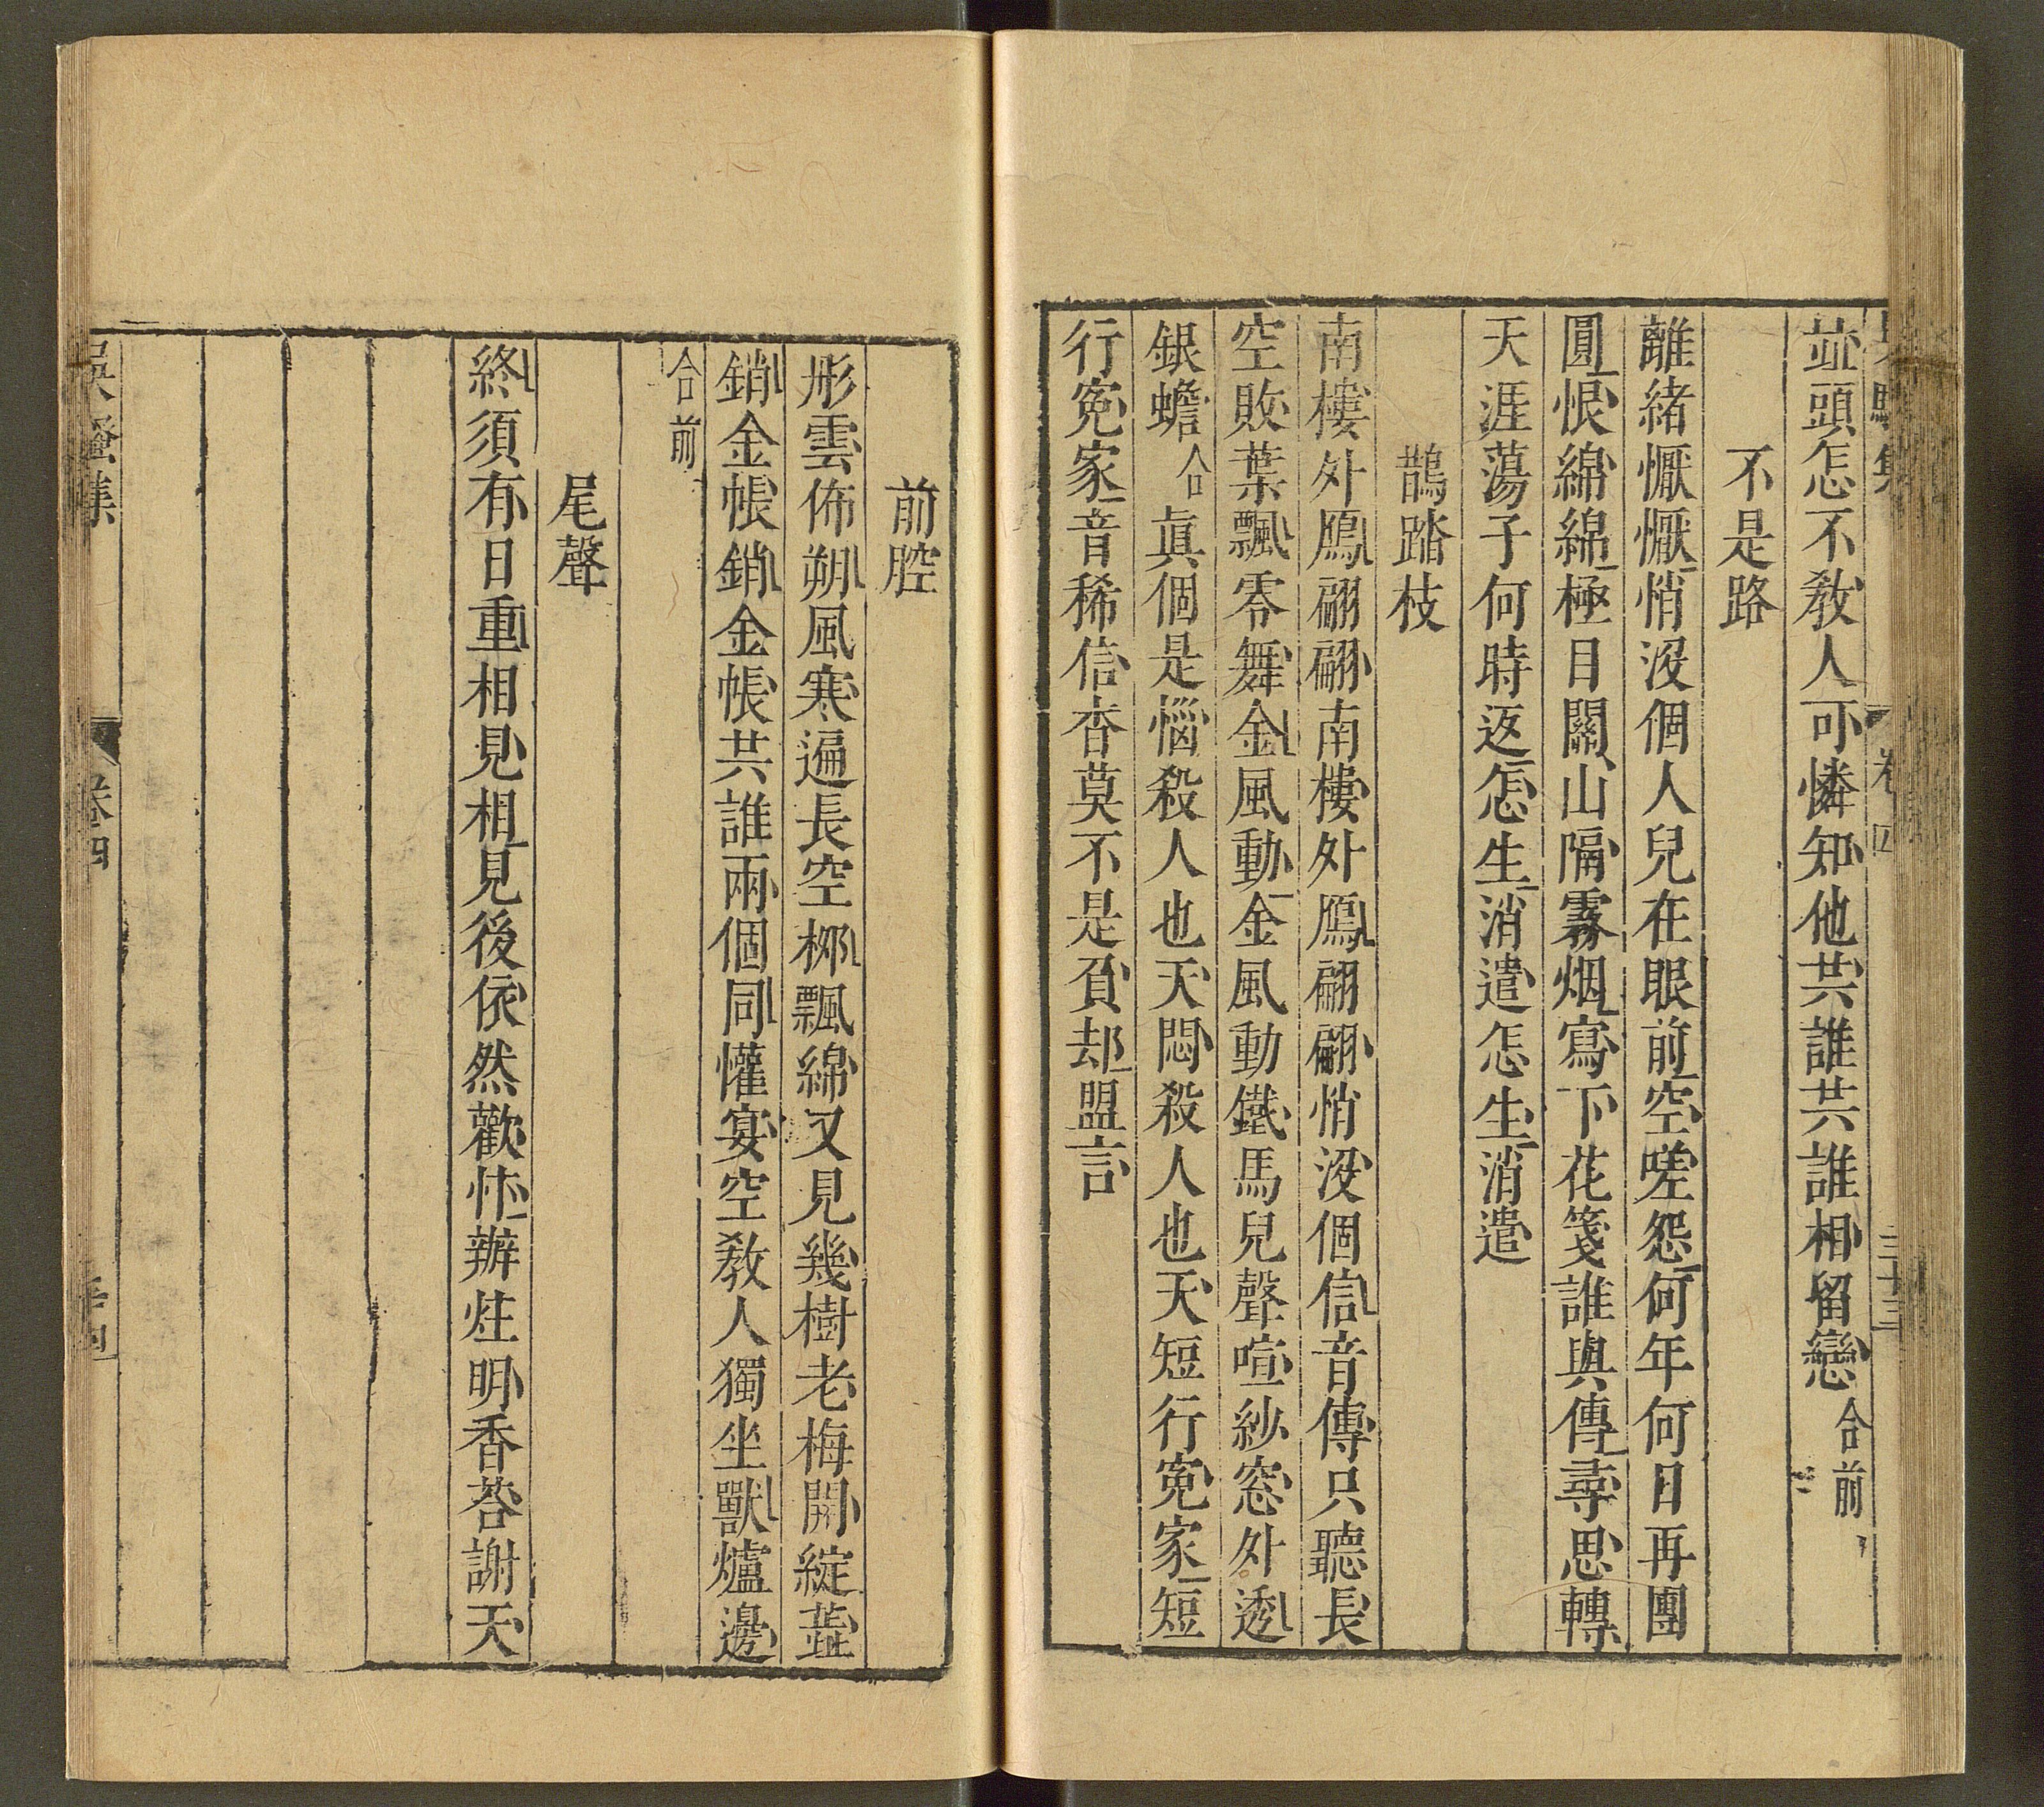 卷四
三十三
並頭怎不教人可憐知他共誰共誰相留戀合前
不是路
離緒懨懨悄沒個人兒在眼前空嗟怨何年何日再團
圓恨綿綿極目關山隔霧烟寫下花箋誰與傳尋思轉
天涯蕩子何時返怎生消遣怎生消遣
鵲踏枝
南樓外鴈翩翩南樓外鴈翩翩悄沒個信音傳只聽長
空敗葉飄零舞金風動金風動鐵馬兒聲喧紗窓外透
銀蟾合眞個是惱殺人也天悶殺人也天短行寃家短
行寃家音稀信杳莫不是負却盟言
前腔
彤雲佈朔風寒遍長空柳飄綿又見幾樹老梅開綻蕋
銷金帳銷金帳共誰兩個同懽宴空教人獨坐獸爐邊
合前
尾聲
終須有日重相見相見後依然歡忭辦炷明香荅謝天
吳騷集
卷四